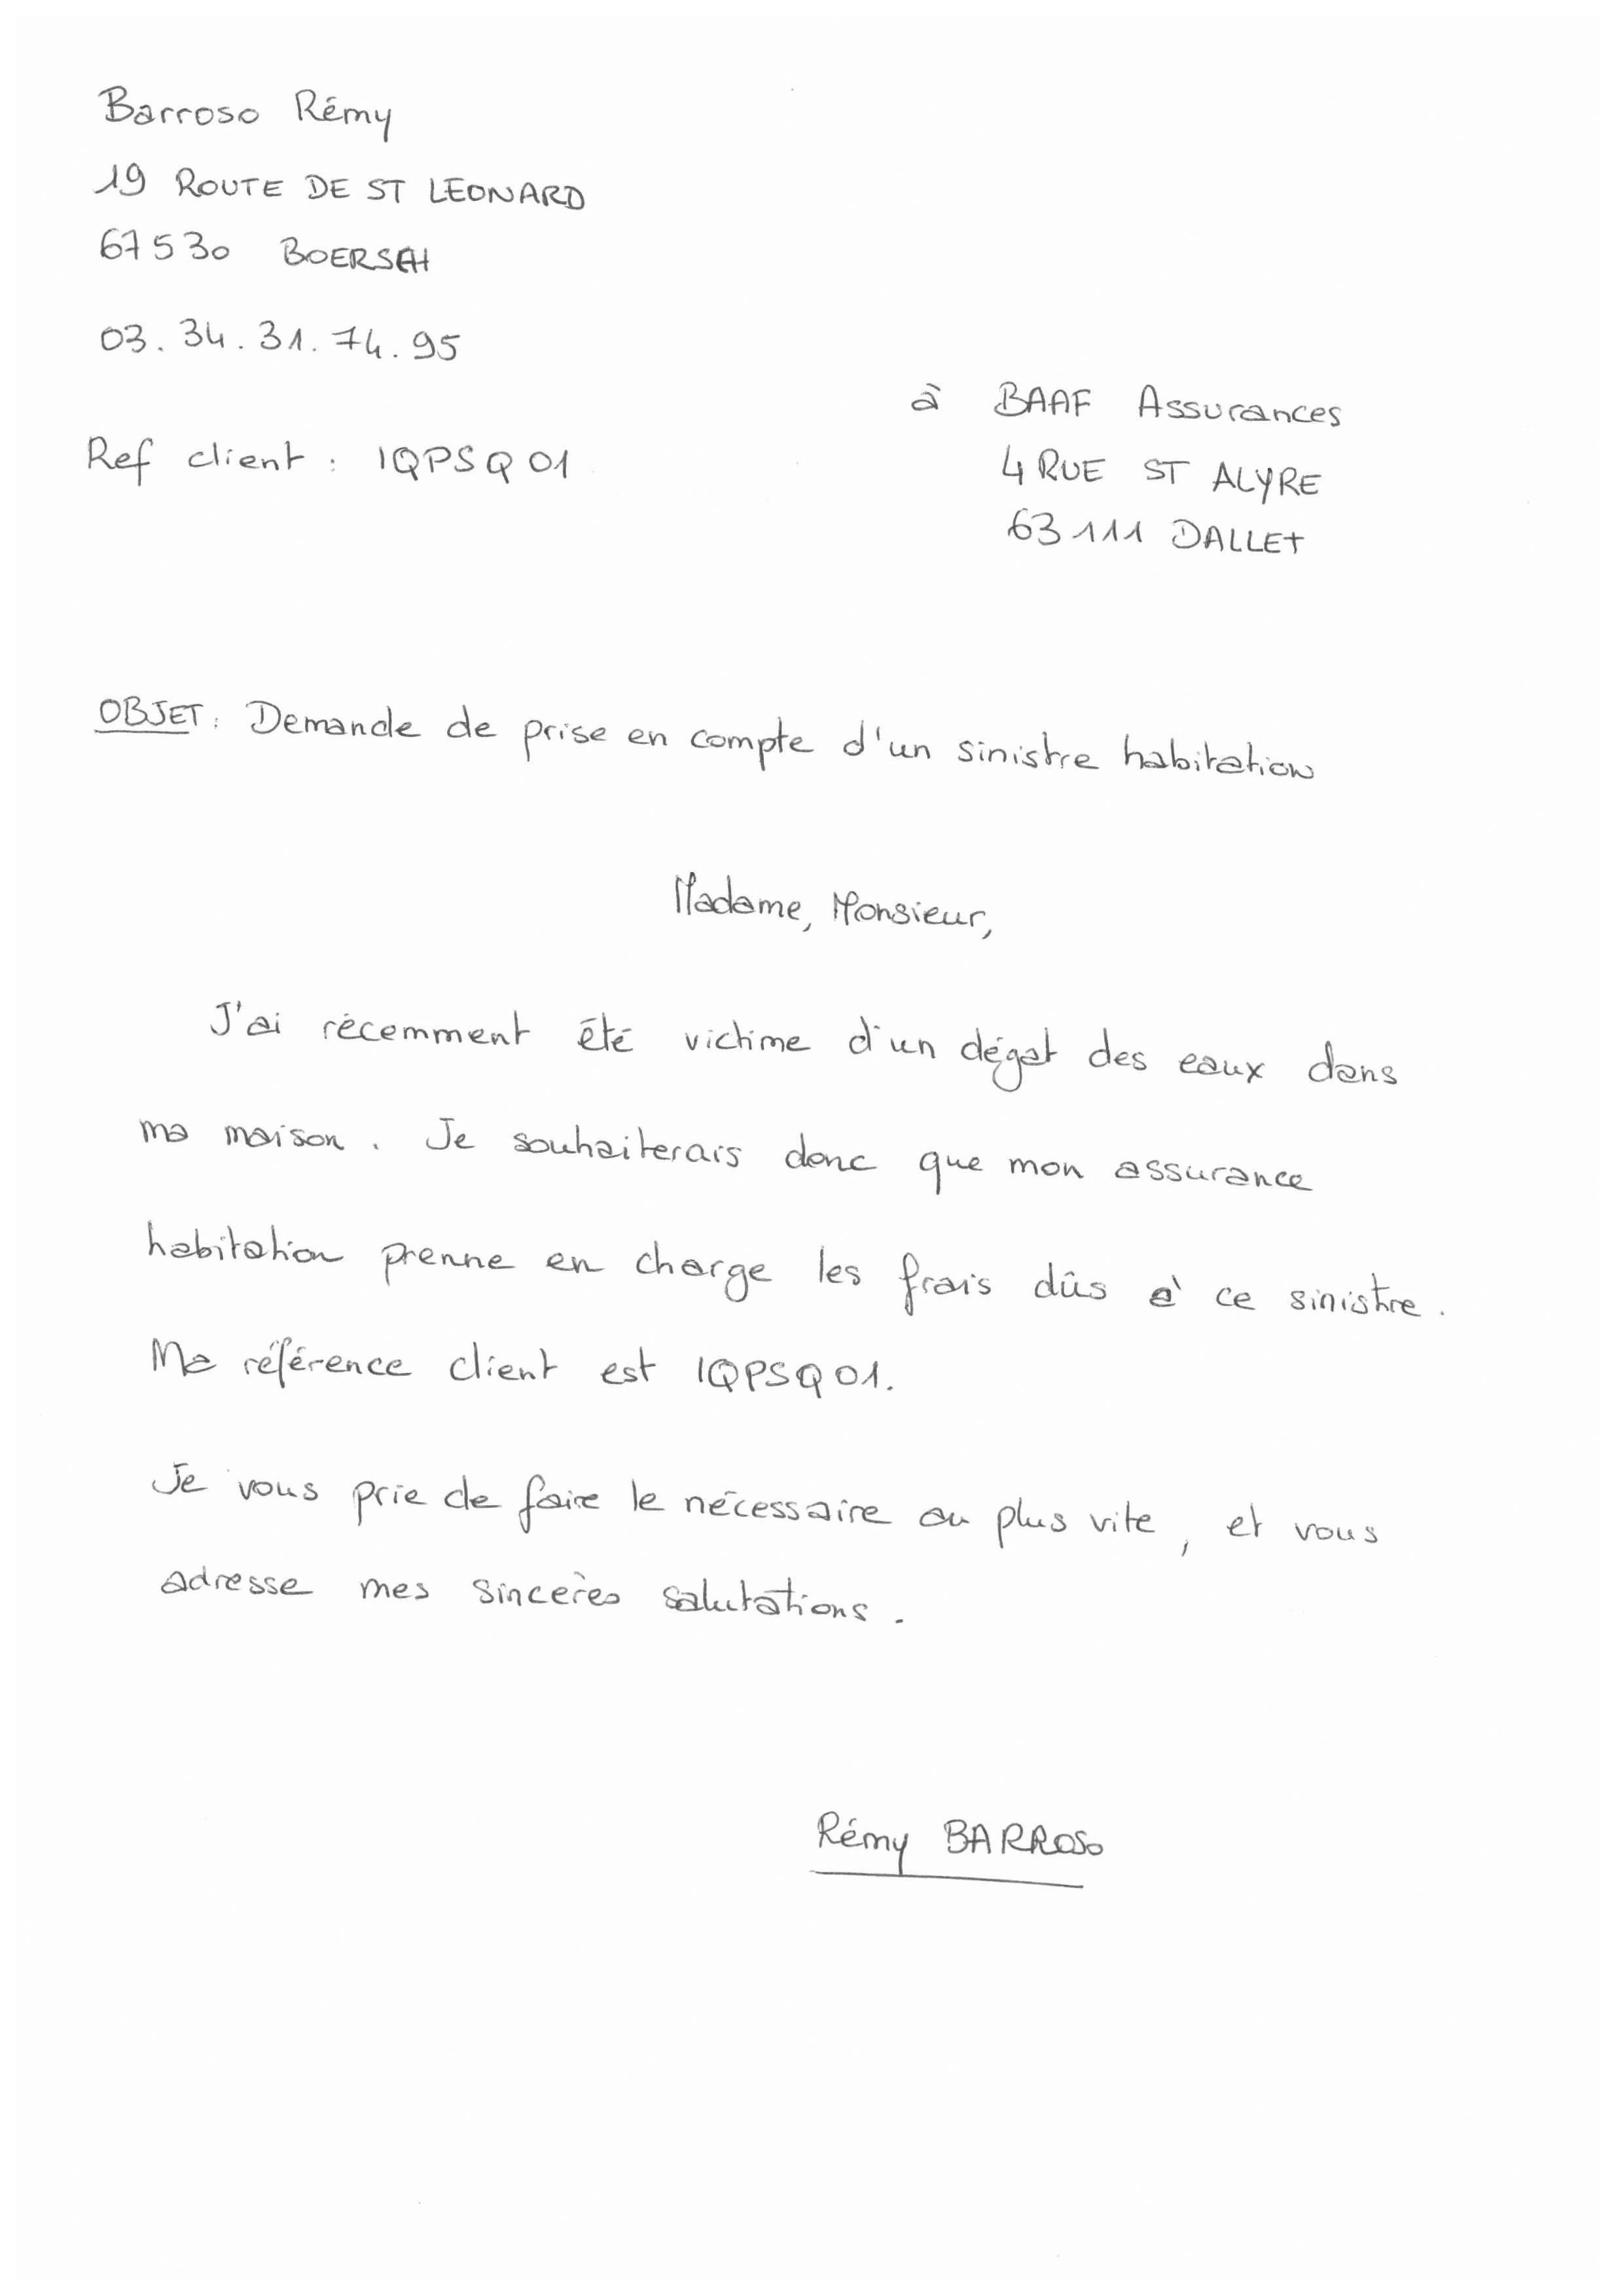 Barroso Rémy
19 ROUTE DE ST LEONARD
67530 BOERSCH
03.34.31.74.95
à BAAF Assurances
Ref client : IQPSQ01
4 RUE ST ALYRE
63111 DALLET
OBJET : Demande de prise en compte d'un sinistre habitation
Madame, Monsieur,
J'ai récemment été victime d'un dégat des eaux dans
ma maison. Je souhaiterais donc que mon assurance
habitation prenne en charge les frais dûs à ce sinistre.
Ma référence client est IQPSQ01.
Je vous prie de faire le nécessaire au plus vite, et vous
adresse mes sincères salutations.
Rémy BARROSO